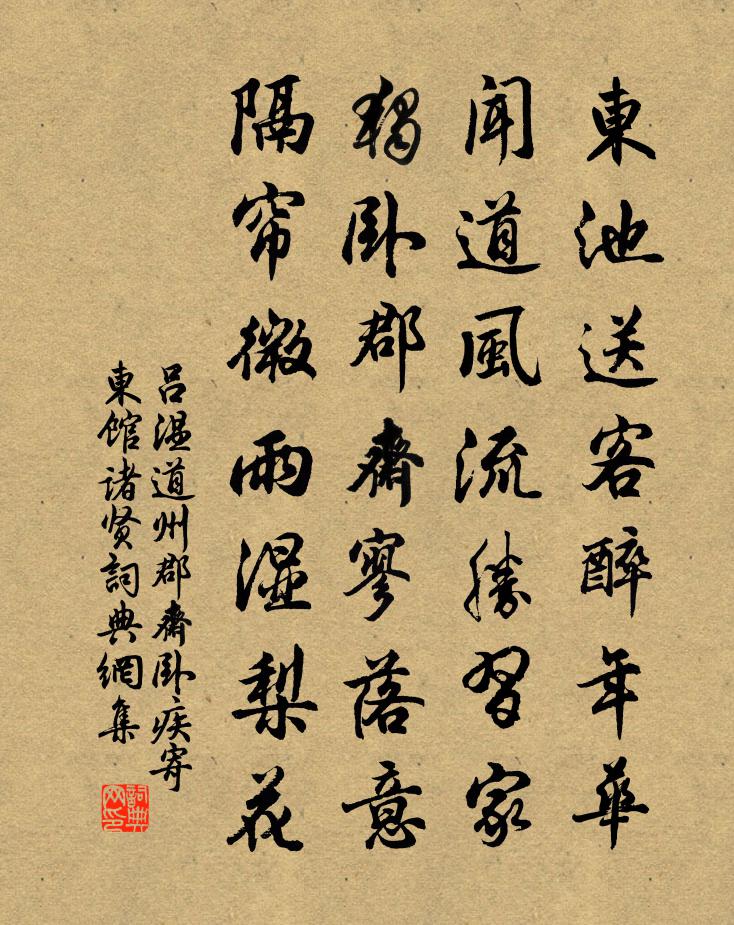 東池送客醉年華
聞道風流勝習家
獨卧郡齋寥落意
隔帘微雨濕梨花
吕温道州郡齋卧疾寄
東館诸贤詞典網集
詞典
网印